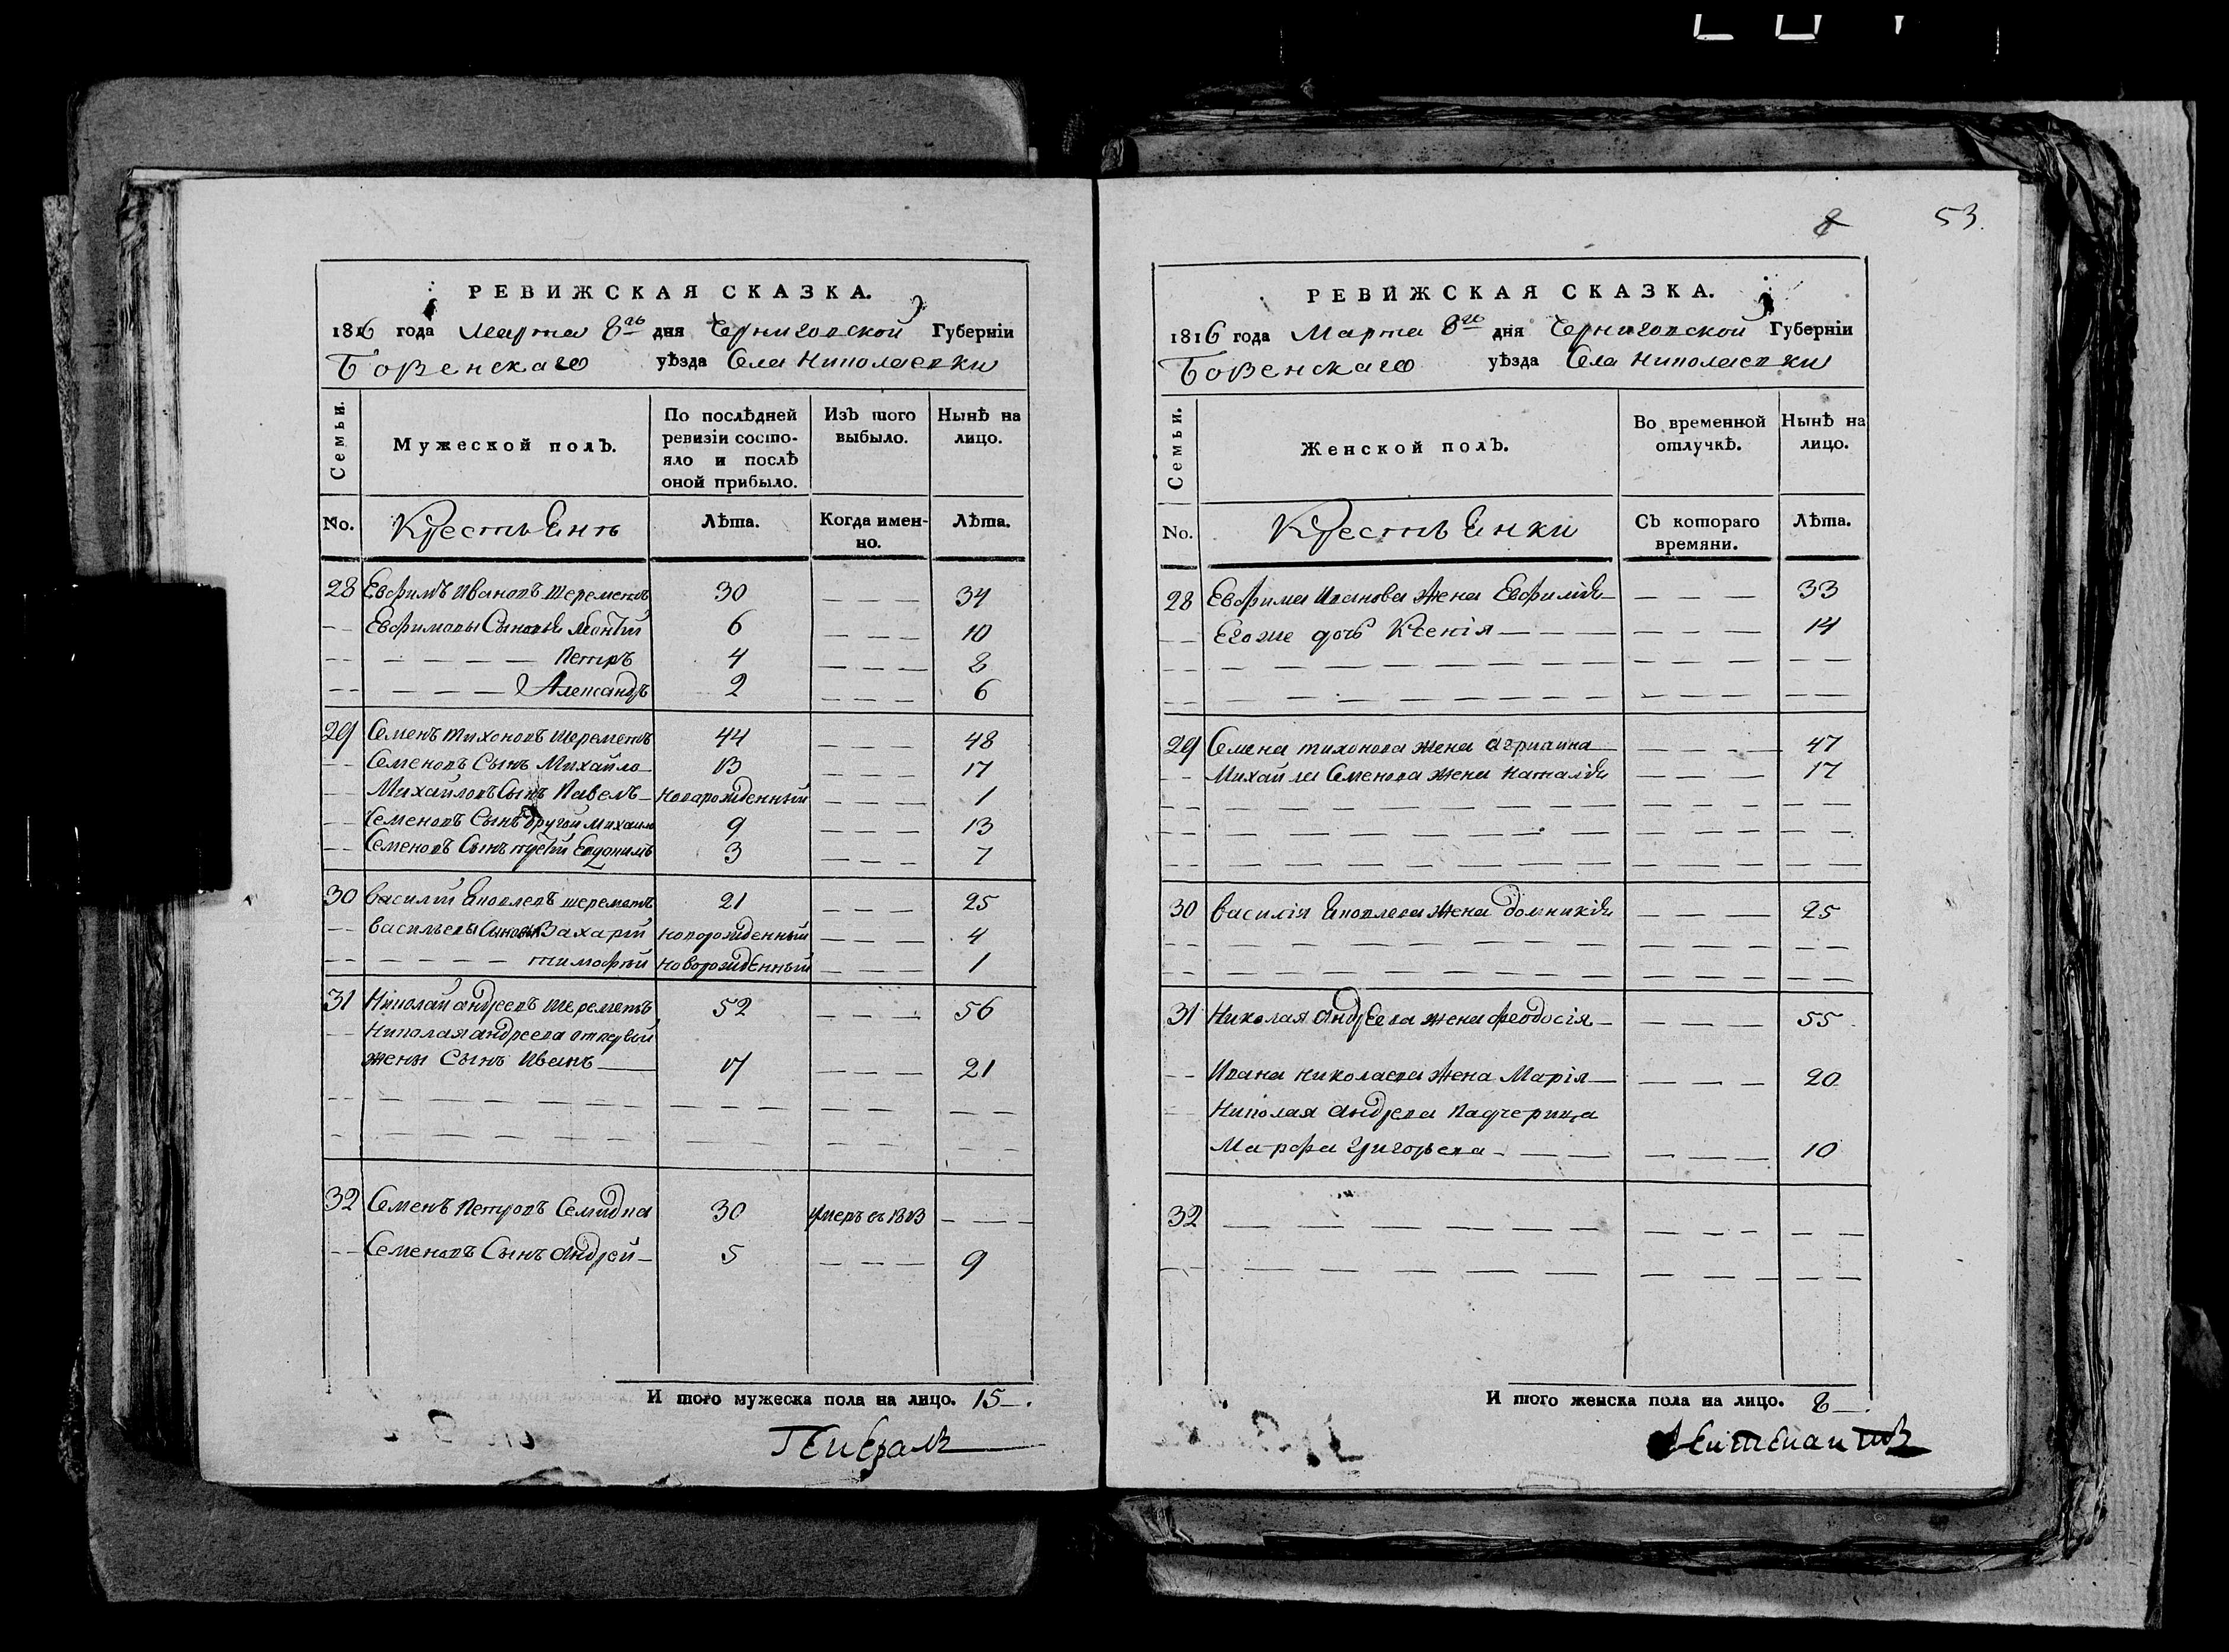 РЕВИЖСКАЯ СКАЗКА.
1816 года Марта 8го дня Черниговской Губерніи
Бозенскаго уѣзда Села Николаевки
Семьи.
Мужеской полъ.
По послѣдней ревизіи состояло и послѣ оной прибыло.
Изъ того выбыло.
Нынѣ на лицо.
No.
Крестьянъ
Лѣта.
Когда именно.
Лѣта.
28 Евфимъ Ивановъ Шереметъ 30 — — — 34
— — Евфимовы Сыновья Леонтій 6 — — — 10
— — — — — — — Петръ 4 — — — 8
— — — — — — Александръ 2 — — — 6
29 Семенъ Тихоновъ Шереметъ 44 — — — 48
— — Семеновъ Сынъ Михайло 13 — — — 17
— — Михайловъ Сынъ Павелъ новарожденный — — — 1
— — Семеновъ Сынъ другой Михайло 9 — — — 13
— — Семеновъ Сынъ третій Евдокимъ 3 — — — 7
30 Василій Яковлевъ Шереметъ 21 — — — 25
— — Васильевы Сыновья Захарій новорожденный — — — 4
— — — — — — — Тимофѣй новорожденный — — — 1
31 Николай Андреевъ Шереметъ 52 — — — 56
— — Николая Андреева от первой
жены Сынъ Иванъ — 17 — — — 21
32 Семенъ Петровъ Семидна 30 умеръ въ 1813 — — —
— — Семеновъ Сынъ Андрей — 5 — — — 9
И того мужеска пола на лицо. 15 —.
Генералъ
8 53.
РЕВИЖСКАЯ СКАЗКА.
1816 года Марта 8го дня Черниговской Губерніи
Бозенскаго уѣзда Села Николаевки
Семьи.
Женской полъ.
Во временной отлучкѣ.
Нынѣ на лицо.
No.
Крестьянки
Съ котораго времяни.
Лѣта.
28 Евфима Иванова жена Евфимія — — — — 33
— — Егоже дочь Ксенія — — — — — — 14
29 Семена Тихонова жена Агрипина — — — — 47
— — Михайла Семенова жена Наталія — — — 17
30 Василія Яковлева жена Домникія — — — 25
31 Николая Андреева жена Феодосія — — — — 55
— — Ивана Николаева жена Марія — — — — 20
— — Николая Андреева Падчерица
Марфа Григорьева — — — — — — 10
32
И того женска пола на лицо. 8 —.
Лейтенантъ